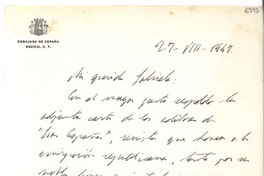 6595
EMBAJADA DE ESPAÑA
MEXICO, D. F.
27-VIII-1947.
Mi querida Gabriela:
Con el mayor gusto respaldo la
adjunta carta de los editores de
"Las Españas", revista que honra a la
emigración republicana, tanto por su
noble